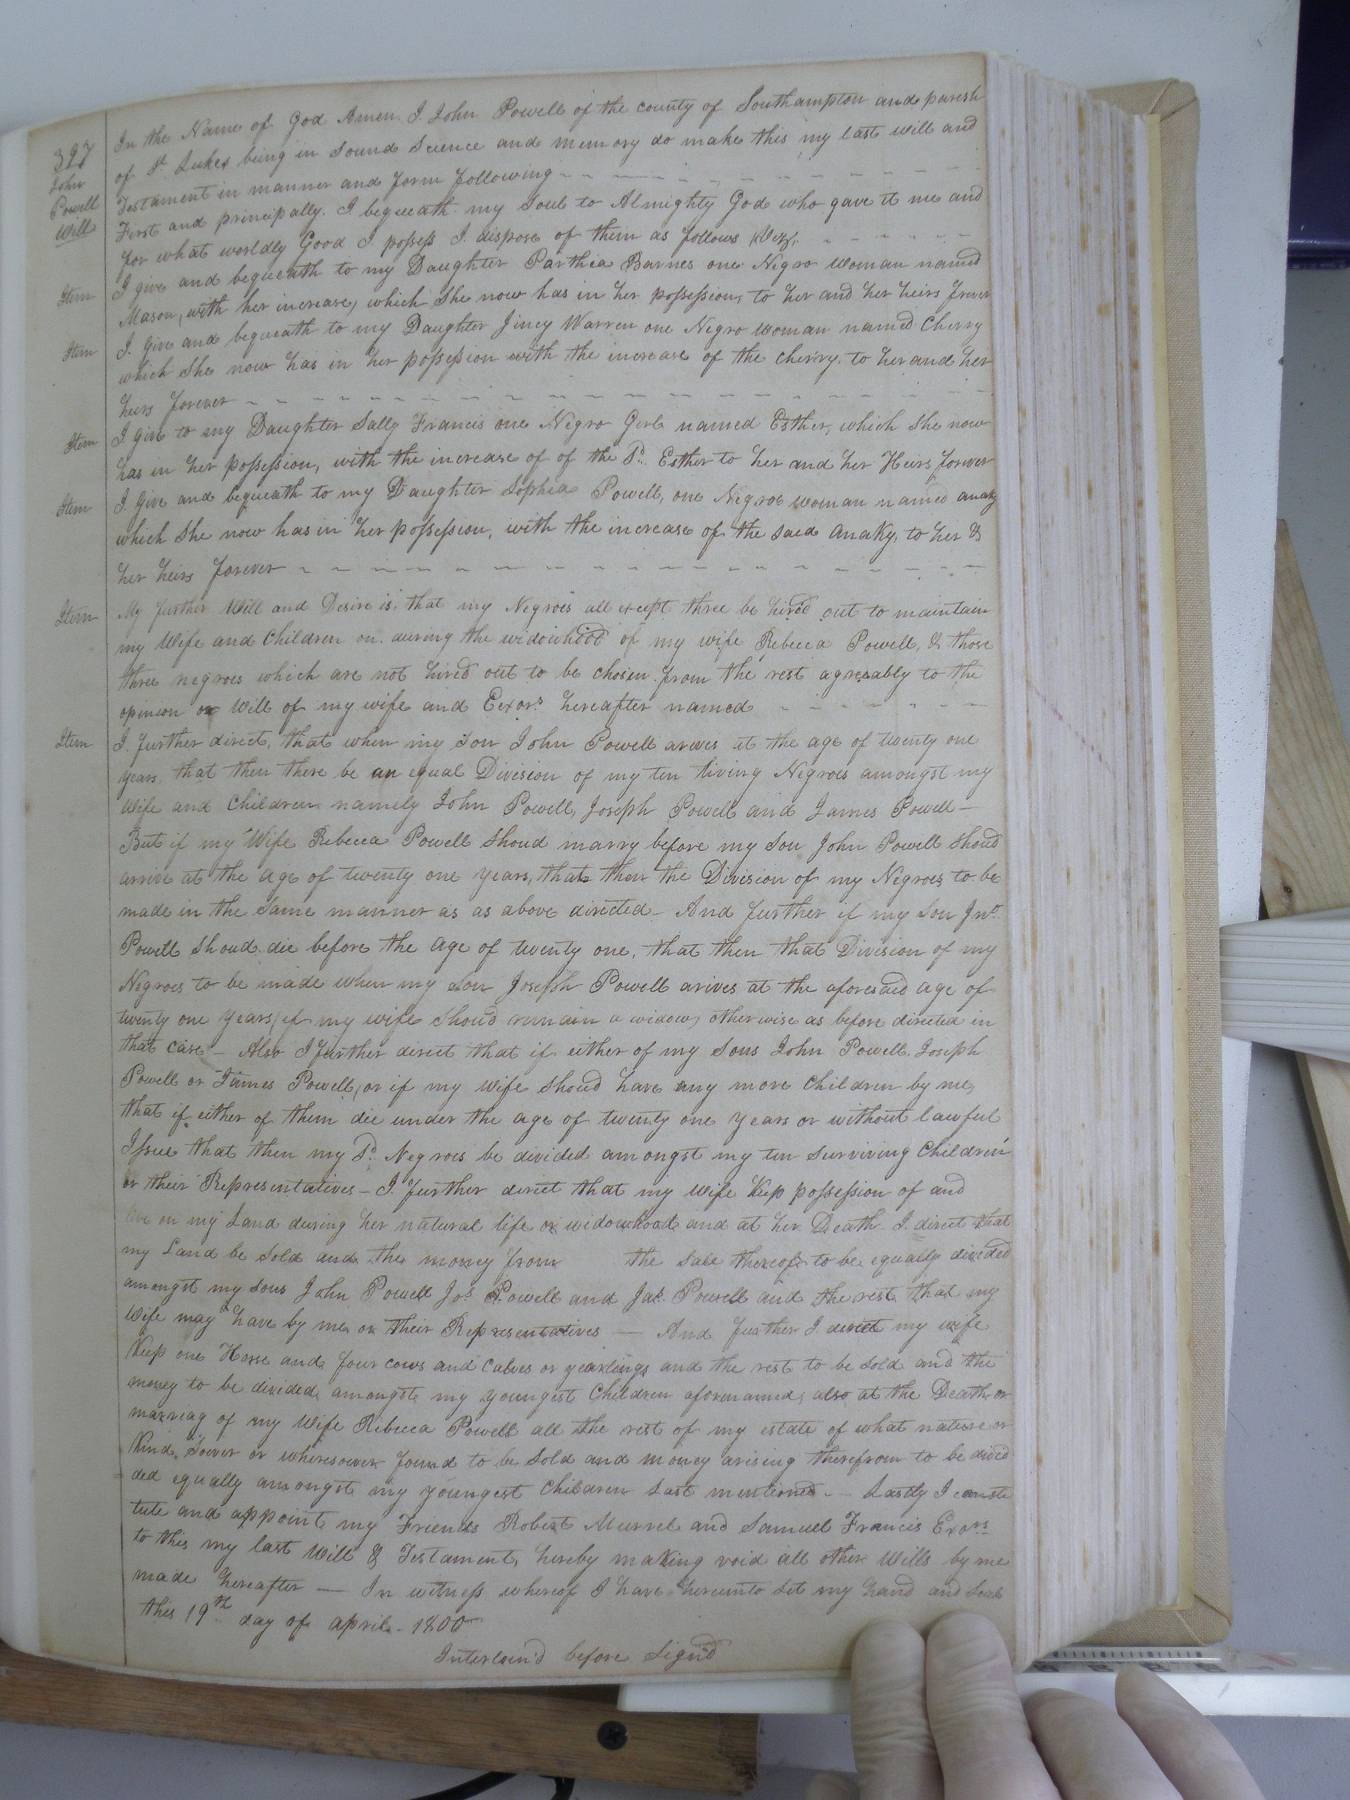 327
John
Powell
Will
In the Name of God Amen I John Powell of the county of Southampton and parish
of St Lukes being in Sound Science and memory do make this my last will and
Testament in manner and form following
First and principally. I bequeath my Soul to Almighty God who gave it me and
for what worldly Good I possess I dispose of them as follows
Item I give and bequeath to my Daughter Parthia Barnes one Negro woman named
Mason, with her increase, which she now has in her possession, to her and her heirs forever
Item I give and bequeath to my Daughter Jincy Warren one Negro woman named Cherry
which she now has in her possession with the increase of the Cherry, to her and her
heirs forever
Item I give to my Daughter Sally Francis one Negro Girl named Esther, which she now
has in her possession, with the increase of of the Sd. Esther to her and her Heirs forever
Item I give and bequeath to my Daughter Sophia Powell, one Negroe woman named anaky
which she now has in her possession, with the increase of the said Anaky, to her &
her heirs forever
Item My further Will and Desire is, that my Negroes all except three be hired out to maintain
my Wife and Children on during the widowhood of my wife Rebecca Powell, & those
three negroes which are not hired out to be chosen from the rest agreeably to the
opinion or Will of my wife and Exors hereafter named
Item I further direct, that when my Son John Powell arives at the age of twenty one
years that then there be an equal Division of my ten living Negroes amongst my
Wife and Children namely John Powell, Joseph Powell and James Powell —
But if my Wife Rebecca Powell shoud marry before my Son John Powell should
arrive at the age of twenty one years, that then the Division of my Negroes to be
made in the same manner as as above directed — And further if my Son Jno.
Powell shoud die before the age of twenty one, that then that Division of my
Negroes to be made when my Son Joseph Powell arives at the aforesaid age of
twenty one years if my wife should remain a widow, otherwise as before directed in
that case — Also I further direct that if either of my Sons John Powell Joseph
Powell or James Powell, or if my wife should have any more children by me,
that if either of them die under the age of twenty one years or without lawful
Issue that then my Sd. Negroes be divided amongst my ten surviving Children
or their Representatives — I further direct that my wife keep possession of and
live on my Land during her natural life or widowhood and at her Death I direct that
my Land be Sold and the money from the sale thereof to be equally divided
amongst my Sons John Powell Jos. Powell and Jas. Powell and the rest that my
Wife may have by me or their Representatives — And further I direct my wife
keep one Horse and four cows and calves or yearlings and the rest to be sold and the
money to be divided amongst my youngest Children aforenamed, also at the Death or
marriag of my Wife Rebecca Powell all the rest of my estate of what nature or
kind Soever or wheresoever found to be Sold and money arising therefrom to be divid
ded equally amongst my youngest Children Last mentioned — Lastly I consti
tute and appoint my Friends Robert Murrel and Samuel Francis Exors
to this my last Will & Testament, hereby making void all other Wills by me
made hereafter — In witness whereof I have hereunto Set my hand and Seal
this 19th day of april 1800
Interlein'd before Sign'd